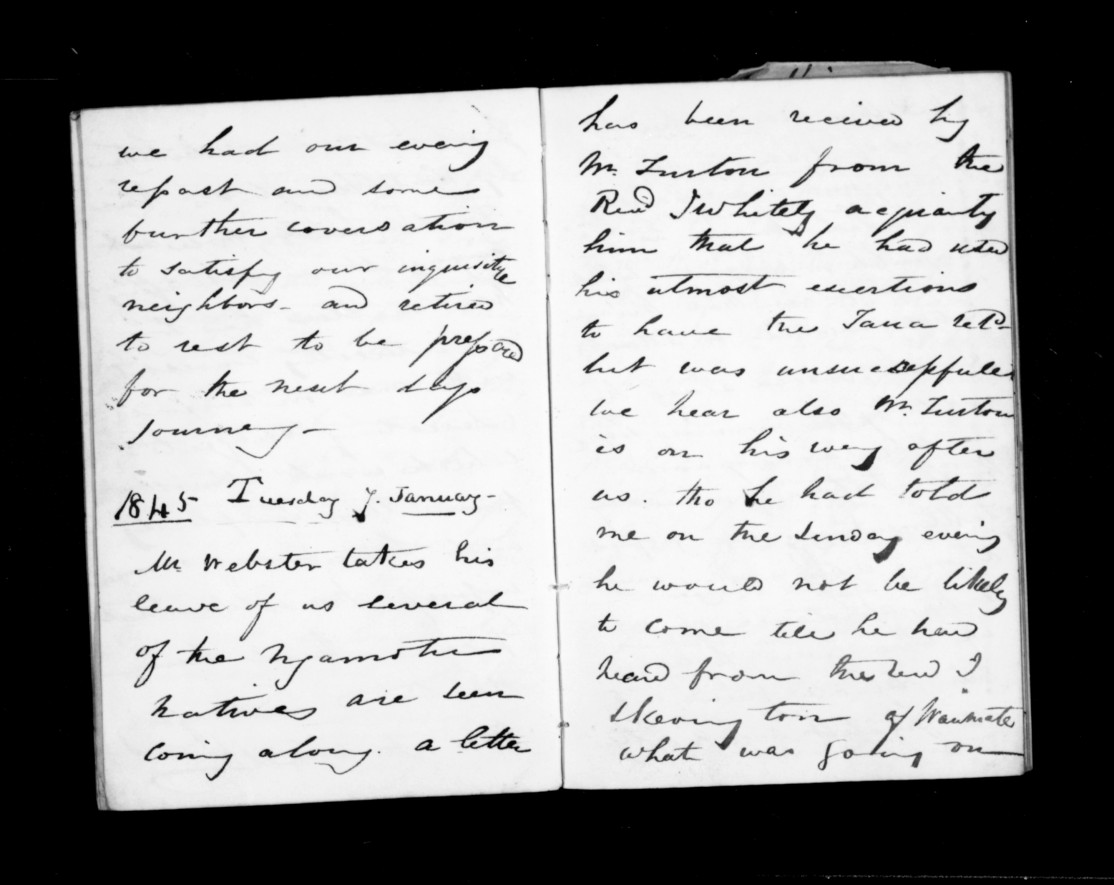 we had our evening
repast and some
further coversation
to satisfy our inquisitve
neighbors - and retired
to rest to be prepared
for the next days
Journey -
1845 Tuesday 7. January -
Mr Webster takes his
leave of us several
of the Ngamotu
natives are seen
coming along. a letter
has been recieved by
Mr. Turton from the
Revd J Whitely acquaintg
him that he had used
his utmost exertions
to have the Taua retd -
but was unsuccessfull
we hear also Mr. Turton
is on his way after
us. tho he had told
me on the Sunday evening
he would not be likely
to come till he had
heard from the Revd J
Skevington of Waimate
what was going on